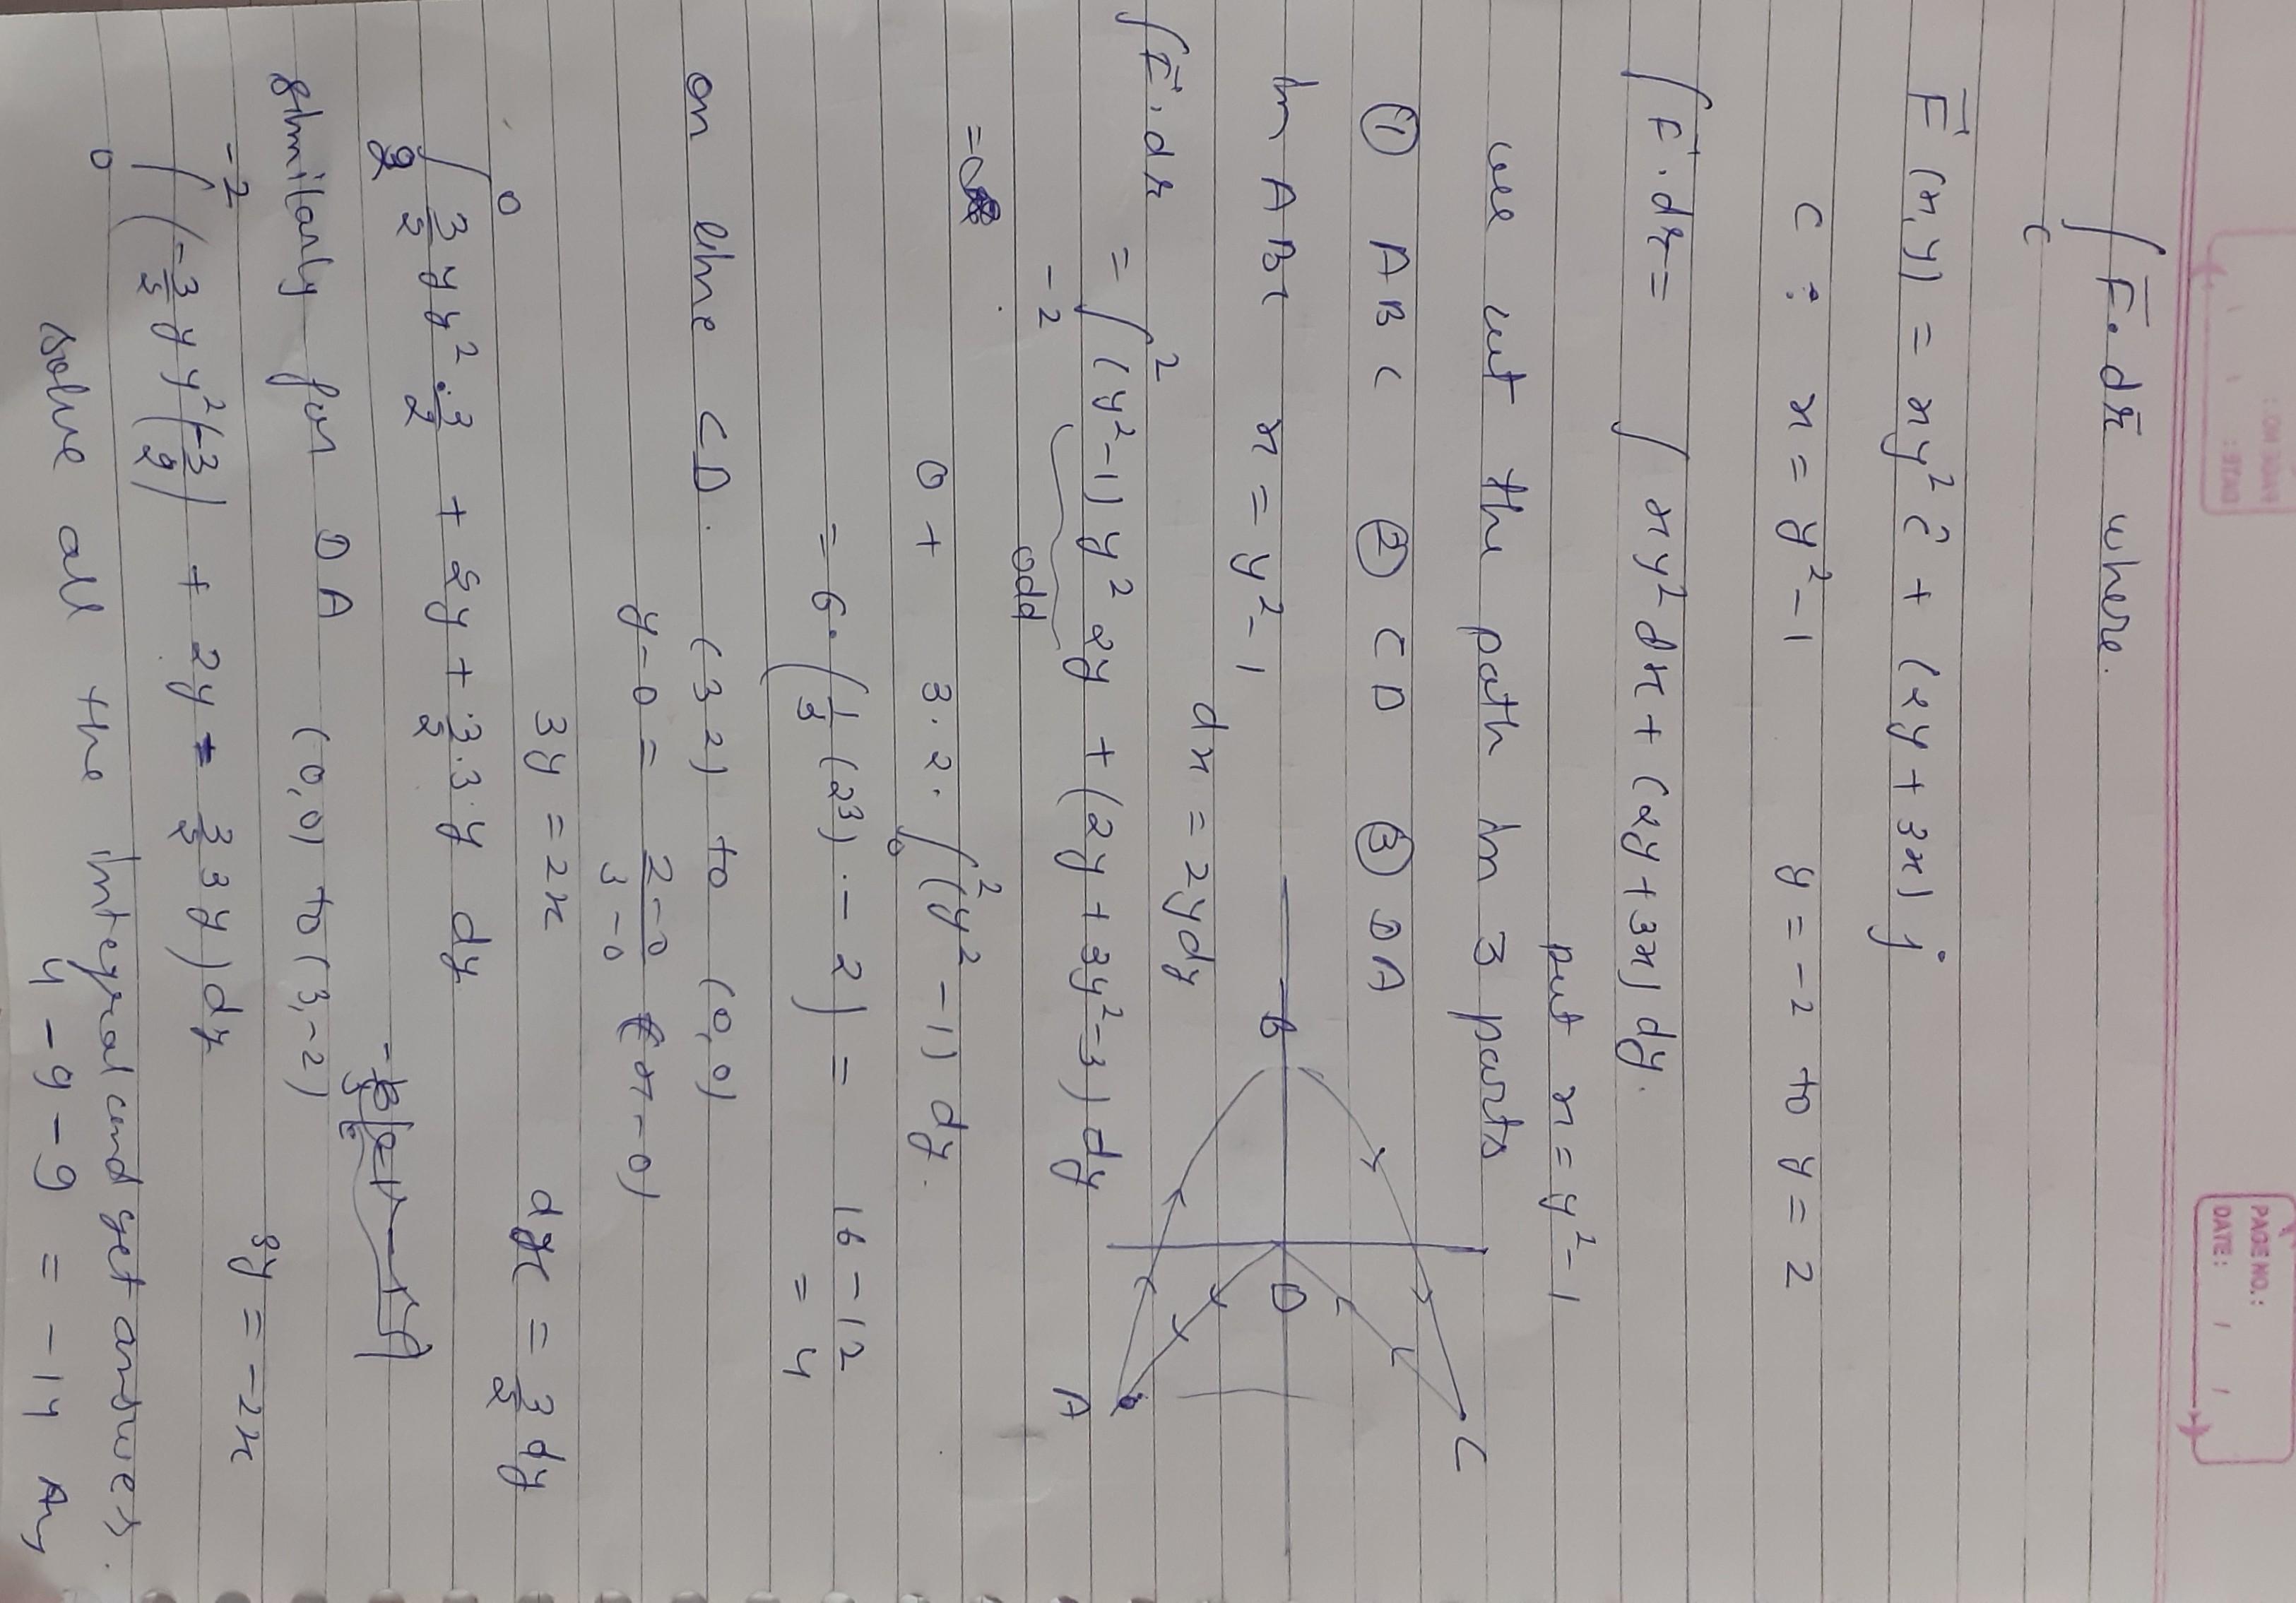 PAGE NO.:
DATE: / /
∫_C F̅·dr̅ where.
F̅(x,y) = xy² î + (2y+3x) j
C: x = y²-1 y = -2 to y = 2
∫F·dr = ∫ xy² dx + (2y+3x) dy.
put x = y²-1
we cut the path in 3 parts
① ABC ② CD ③ DA
C
B
D
A
in ABC x = y²-1
dx = 2y dy
∫F·dr = ∫_{-2}^{2} (y²-1) y² 2y + (2y+3y²-3) dy
odd
0 + 3·2·∫_0^2 (y²-1) dy.
= 6·(1/3 (2³) - 2) = 16-12
= 4
on line CD. (3 2) to (0,0)
y-0 = 2-0/3-0 (x-0)
3y = 2x dx = 3/2 dy
∫_2^0 3/2 y y² · 3/2 + 2y + 3/2·3·y dy
similarly for DA (0,0) to (3,-2)
3y = -2x
∫_0^{-2} (-3/2 y y² (-3/2) + 2y - 3/2 3y) dy
solve all the integral and get answer.
4 - 9 - 9 = -14 Ans